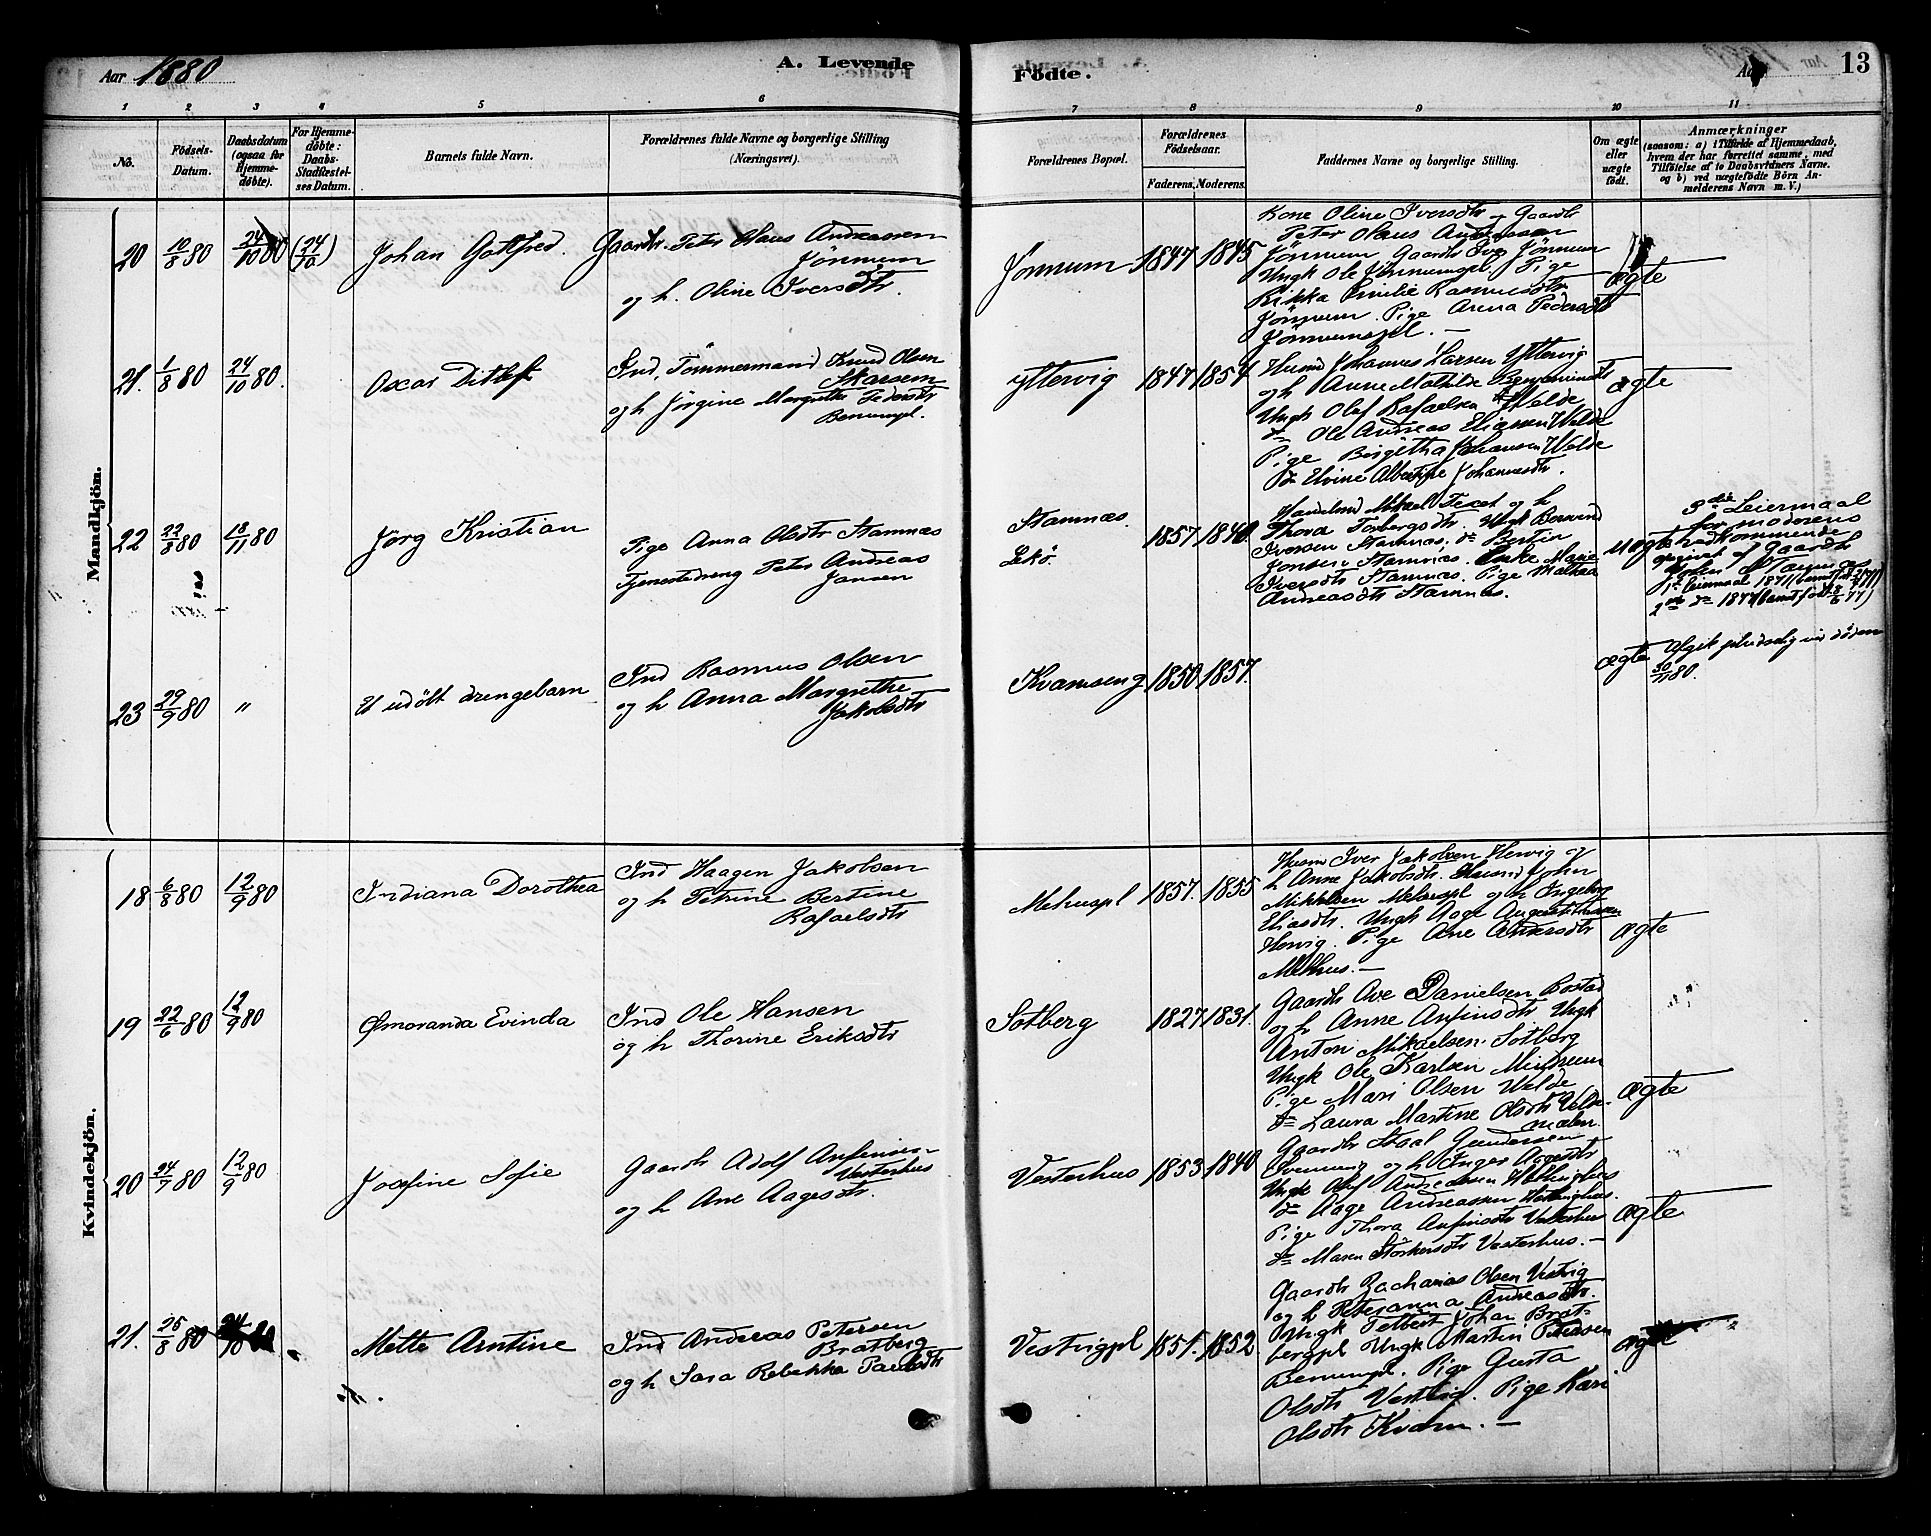 Aar 1880
A. Levende
Födte.
Aar
13
1 2 3 4 5 6 7 8 9 10 11
No.
Födsels-
Datum.
Daabsdatum
(ogsaa for
Hjemme-
döbte).
For Hjemme-
döbte:
Daabs-
Stadfæstel-
ses Datum.
Barnets fulde Navn.
Forældrenes fulde Navne og borgerlige Stilling
(Næringsvei).
Forældrenes Bopæl.
Forældrenes
Födselsaar.
Faderens. Moderens.
Faddernes Navne og borgerlige Stilling.
Om ægte
eller
uægte
födt.
Anmærkninger
(saasom: a) i Tilfælde af Hjemmedaab,
hvem der har forrettet samme, med
Tilföielse af to Daabsvidners Navne,
og b) ved uægtefödte Börn An-
melderens Navn m. V.)
Mandkjön.
20 10/8 80 24/10 80 (24/10) Johan Gotfred.
Gaardb. Peter Olaus Andreassen
Jönnum
og h. Oline Iversdtr.
Jönnum 1847 1845
Kone Oline Iversdtr, Gaardb
Peter Olaus Andreassen
Jönnum, Gaardb Iver Jönnum
Ungk Ole Jönnumspl. Pige
Rikka Emilie Rasmusdtr
Jönnum. Pige Arena Pedersdtr
Jönnumspl. —
ægte
21. 1/8 80 24/10 80. Oscar Ditlef
Ind, Tömmermand Knud Olsen
Skarsem
og h Jörgine Margrethe Pedersdtr
Benumpl.
Yttervig 1847 1854
Husmd Johannes Larsen Yttervig
og h Anne Mathilde Benjaminsdtr
Ungk Olaf Rafaelsen Welde
do Ole Andreas Eliassen Welde
Pige Birgitha Johansen Welde
do Elvine Albertine Johannesdtr.
ægte
22 22/8 80 18/11 80 Jörg Kristian
Pige Anna Olsdtr Stamnæs
Tjenestedreng Peter Andreas
Jansen
Stamnæs.
Lekö.
1857 1840
Handelsmd Mikael Fexet og h
Thora Torbergsdtr. Ungk Bernind
Iversen Stamnæs. do Bertin
Jonsen Stamnæs. Enke Marie
Iversdtr Stamnæs. Pige Mathea
Andreasdtr Stamnes.
uægte
3die Leiermaal
for moderens
vedkommende
1ste leiermaal 1871
2det do 1877
23 29/9 80 "
Et udöbt drengebarn
Ind Rasmus Olsen
og h Anna Margrethe
Jakobsdtr
Kvamseng 1850 1857
ægte
Afgik pludselig ved döden
30/9 80.
Kvindekjön.
18 6/8 80 12/9 80 Indiana Dorothea
Ind Haagen Jakobsen
og h Petrine Bertine
Rafaelsdtr
Mehuspl 1857. 1855
Husm Iver Jakobsen Horvig og
h Anne Jakobsdtr. Husmd John
Mikkelsen Mehuspl og h Ingeborg
Eliasdtr. Ungk Aage
Horvig. Pige Ane Andersdtr
Mehus. —
ægte
19 22/6 80 12/9 80 Osmoranda Evinda
Ind Ole Hansen
og h Thorine Eriksdtr
Solberg 1827 1831.
Gaardb Ove Danielsen Bostad
og h Anne Anfinsdtr Ungk
Anton Mikaelsen Solberg
Ungk Ole Karlsen
Pige Mari Olsen Welde
do Laura Martine Olsdtr Velde-
malen.
ægte
20 24/7 80 12/9 80 Josefine Sofie
Gaardb Adolf Anfinsen
Vesterhus
og h Ane Aagesdtr.
Vesterhus 1853 1840
Gaardb Staal Gundersen
og h Inger Aagesdtr
Ungk Oluf Andreassen
do Aage Andreassen
Pige Thora Anfinsdtr Vesterhus
do Maren Störkersdtr Vesterhus. —
ægte
21. 25/8 80 24/10 80 Mette Arntine
Ind Andreas Petersen
Bratberg
og h Sara Rebekka Paulsdtr
Vestvigpl 1851. 1852
Gaardb Zacharias Olsen Vestvig
og h Peteranna Andreasdtr.
Ungk Johan Brat-
bergpl Ungk Martin Petersen
Benumpl. Pige Gusta
Olsdtr Vestvig. Pige Kari
Olsdtr Kvam. —
ægte